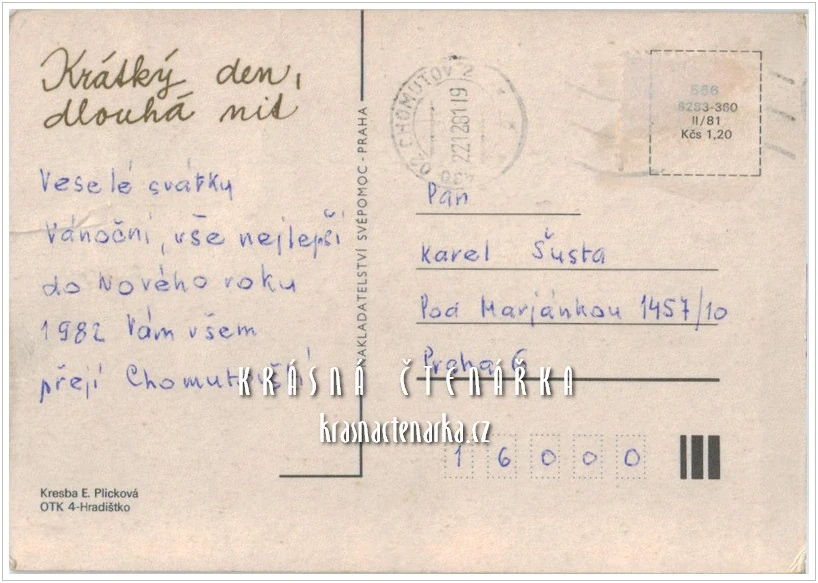 Krátký den,
dlouhá nit
Veselé svátky
Vánoční, vše nejlepší
do Nového roku
1982 Vám všem
přejí Chomutovští
Kresba E. Plicková
OTK 4-Hradištko
NAKLADATELSTVÍ SVÉPOMOC - PRAHA
CHOMUTOV 2
22.12.81 19
430 02
566
6283-360
II/81
Kčs 1,20
Pan
Karel Šusta
Pod Marjánkou 1457/10
Praha 6
16000
KRÁSNÁ ČTENÁŘKA
krasnactenarka.cz